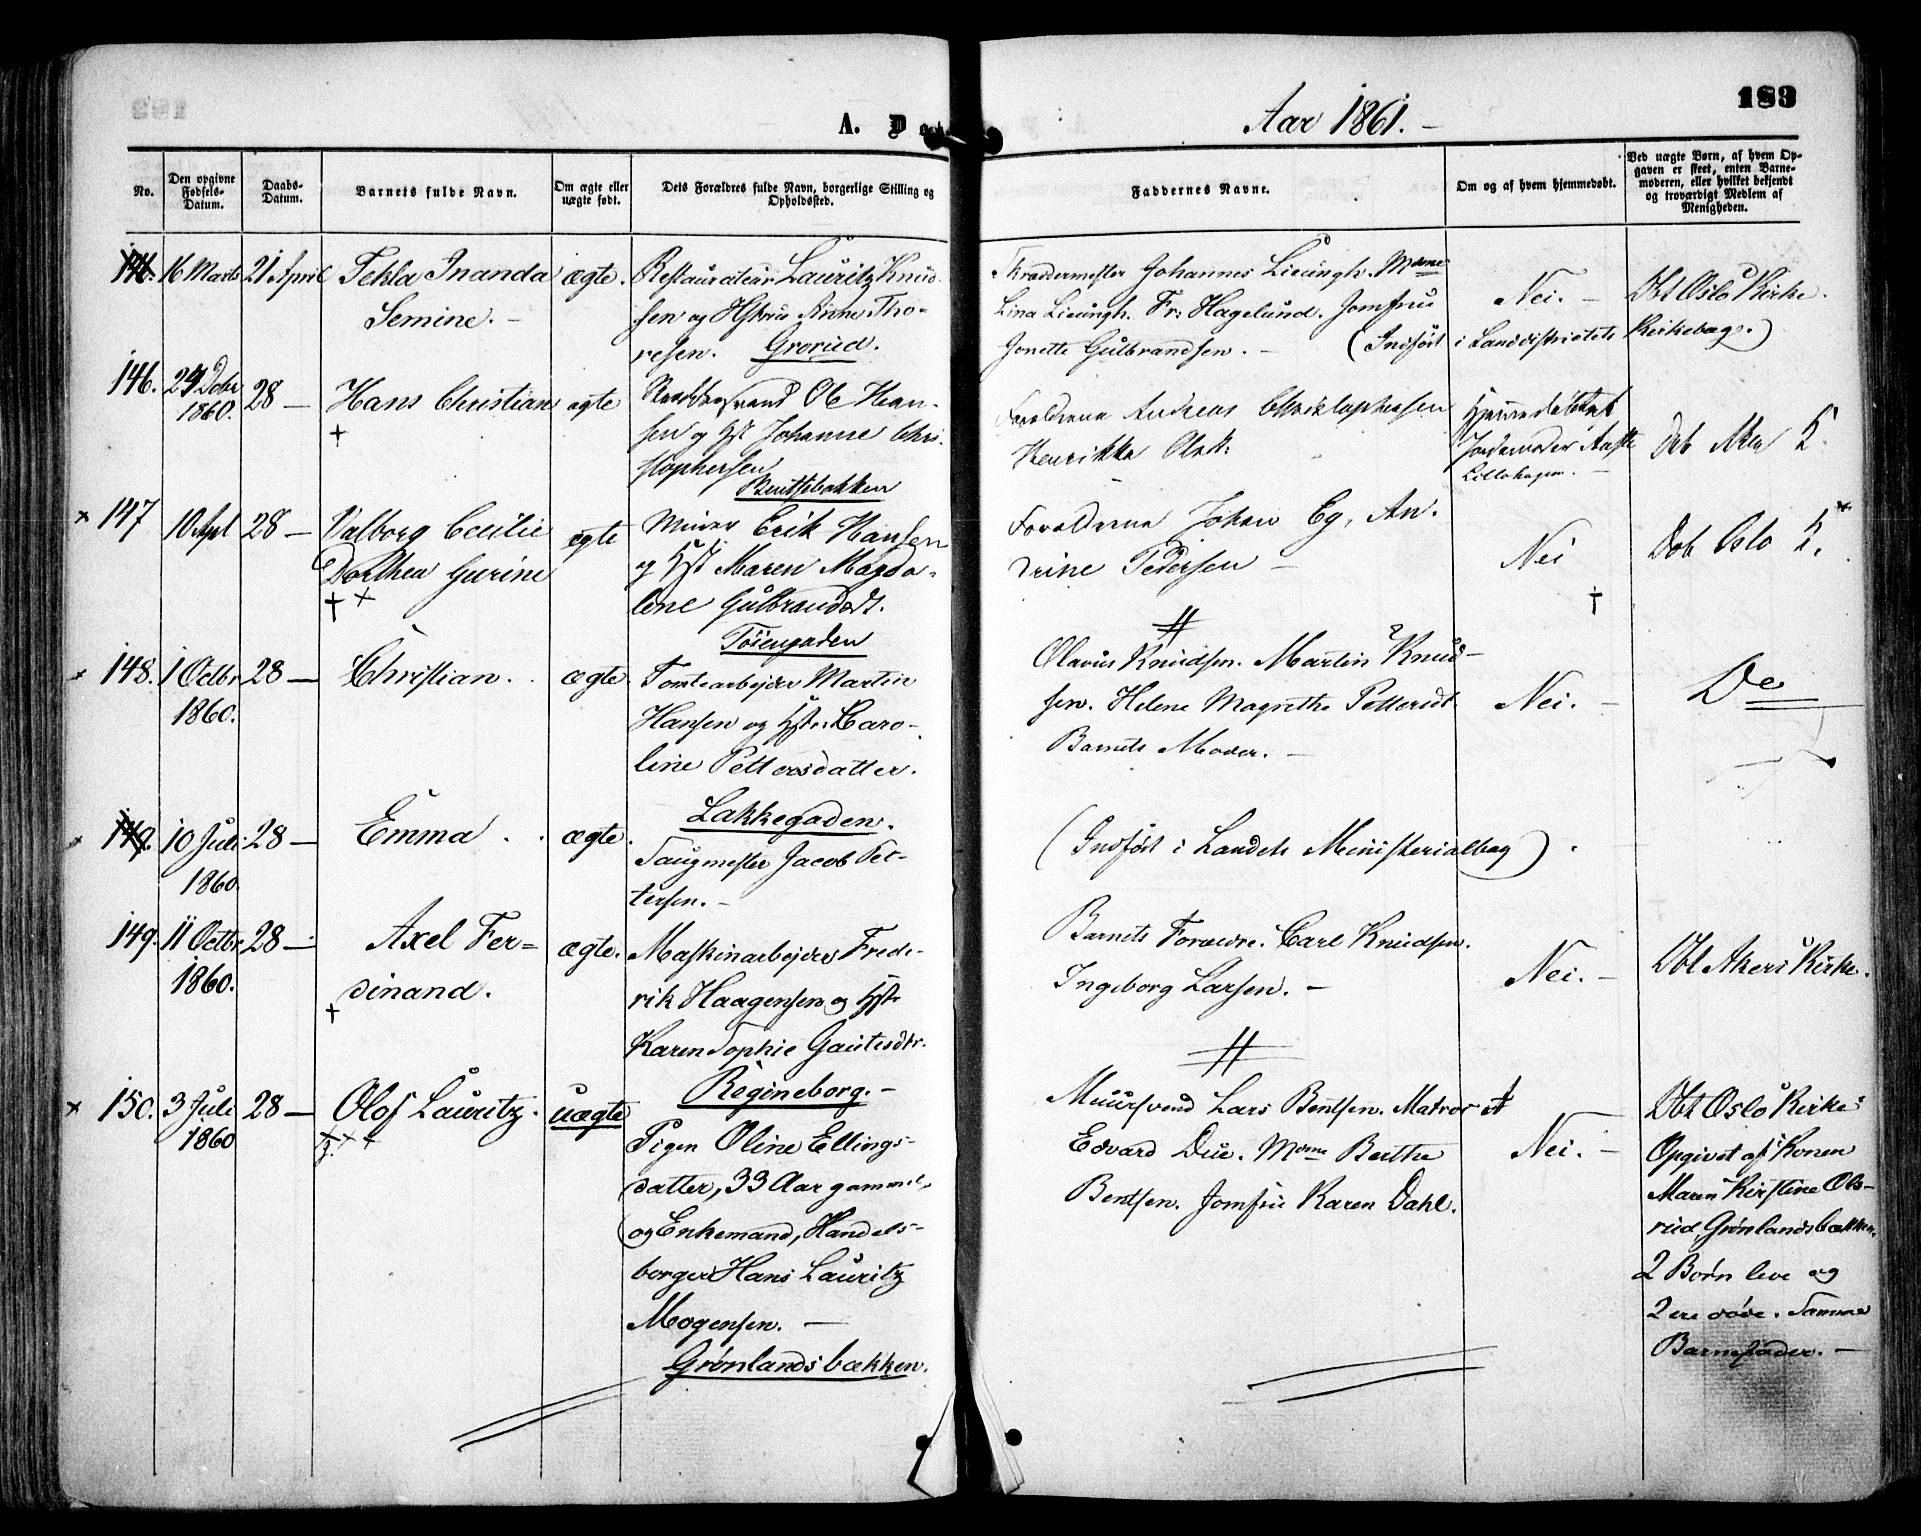 183
A. D
Aar 1861. –
No.
Den opgivne Fødsels-Datum.
Daabs-Datum.
Barnets fulde Navn.
Om ægte eller uægte født.
Dets Forældres fulde Navn, borgerlige Stilling og Opholdssted.
Faddernes Navne.
Om og af hvem hjemmedøbt.
Ved uægte Børn, af hvem Opgaven er skeet, enten Barnemoderen, eller hvilket bekjendt og troværdigt Medlem af Menigheden.
16 Marts 21 April Tekla Inanda ægte. Restaurateur Lauritz Knud-
Semine. – sen og Hstru Anne Tho-
resen. Grorud.
Skræddermester Johannes Lieungh. Mdme
Lina Lieungh. Fr: Hagelund. Jomfru
Jonette Gulbrandsen. – (Indført i Landdistriktets Kirkebog.)
Nei. –
Dbt Oslo Kirke.
146. 1860. 28 – Hans Christian ægte
Ole Han-
sen og Hst Johanne Chri-
stophersen
Bentsebakken
Forældrene Andreas Christophersen
Henrikke Olsdt:
Hjemmedøbt af
Jordemoder
Lillehagen.
Døb Aker K.
× 147 10 Apl 28 – Valborg Cecilie ægte
Dorthea Gurine
† ×
Minør Erik Hansen
og Hst Maren Magda-
lene Gulbrandsdt.
Tøiengaden
Forældrene Johan Eg, An-
drine Pedersen –
Nei
†
Døb Oslo K.
× 148. 1 Octbr 28 – Christian. ægte
1860.
Tomtearbeider Martin
Hansen og Hstr. Caro-
line Pettersdatter.
Lakkegaden.
Olavus Knudsen. Martin Knud-
sen. Helene Magrethe Pettersdt
Barnets Moder. –
Nei. –
Do
× 149. 10 Juli 28 – Emma ægte.
1860
Taugmester Jacob Pet-
tersen. –
(Indført i Landets Ministerialbog).
149. 11 Octbr 28 – Axel Fer= ægte.
1860. dinand.
†
Maskinarbejder Frede-
rik Haagensen og Hstr
Karen Sophie Gautesdtr.
Regineborg. –
Barnets Forældre. Carl Knudsen.
Ingeborg Larsen. –
Nei. –
Dbt Akers Kirke.
× 150. 3 Juli 28 – Olof Lauritz. uægte
1860
Pigen Oline Ellings-
datter, 33 Aar gammel,
og Enkemand, Handels-
borger Hans Lauritz
Mogensen. –
Grønlandsbækken.
Muursvend Lars Bentsen. Matros
Edvard Due. Mdme Berthe
Bentsen. Jomfru Karen Dahl.
Nei. –
Dbt Oslo Kirke
Opgivet af Konen
Maren Kirstine Ols-
rud, Grønlandsbækken.
2 Børn leve og
2 ere døde. Samme
Barnefader. –